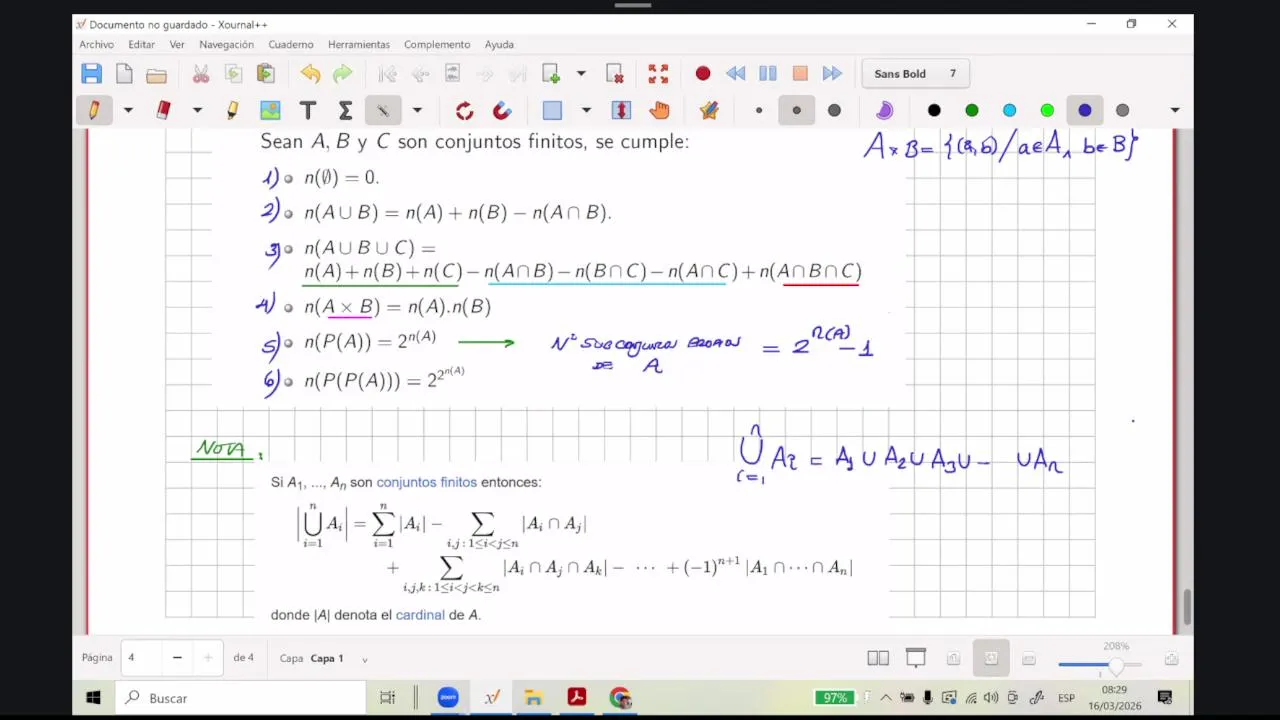 Documento no guardado - Xournal++
Archivo Editar Ver Navegación Cuaderno Herramientas Complemento Ayuda
Sans Bold 7
Sean A, B y C son conjuntos finitos, se cumple:
A × B = {(a,b) / a ∈ A ∧ b ∈ B}
1) n(∅) = 0.
2) n(A ∪ B) = n(A) + n(B) − n(A ∩ B).
3) n(A ∪ B ∪ C) =
n(A) + n(B) + n(C) − n(A∩B) − n(B∩C) − n(A∩C) + n(A∩B∩C)
4) n(A × B) = n(A).n(B)
5) n(P(A)) = 2^{n(A)} → Nº SUBCONJUNTOS PROPIOS = 2^{n(A)} − 1
DE A
6) n(P(P(A))) = 2^{2^{n(A)}}
NOTA:
⋃_{i=1}^{n} A_i = A_1 ∪ A_2 ∪ A_3 ∪ − ∪ A_n
Si A_1, ..., A_n son conjuntos finitos entonces:
|⋃_{i=1}^{n} A_i| = ∑_{i=1}^{n} |A_i| − ∑_{i,j : 1≤i<j≤n} |A_i ∩ A_j|
+ ∑_{i,j,k : 1≤i<j<k≤n} |A_i ∩ A_j ∩ A_k| − ⋯ + (−1)^{n+1} |A_1 ∩ ⋯ ∩ A_n|
donde |A| denota el cardinal de A.
Página 4 de 4 Capa Capa 1 208%
Buscar zoom 97% ESP 08:29
16/03/2026